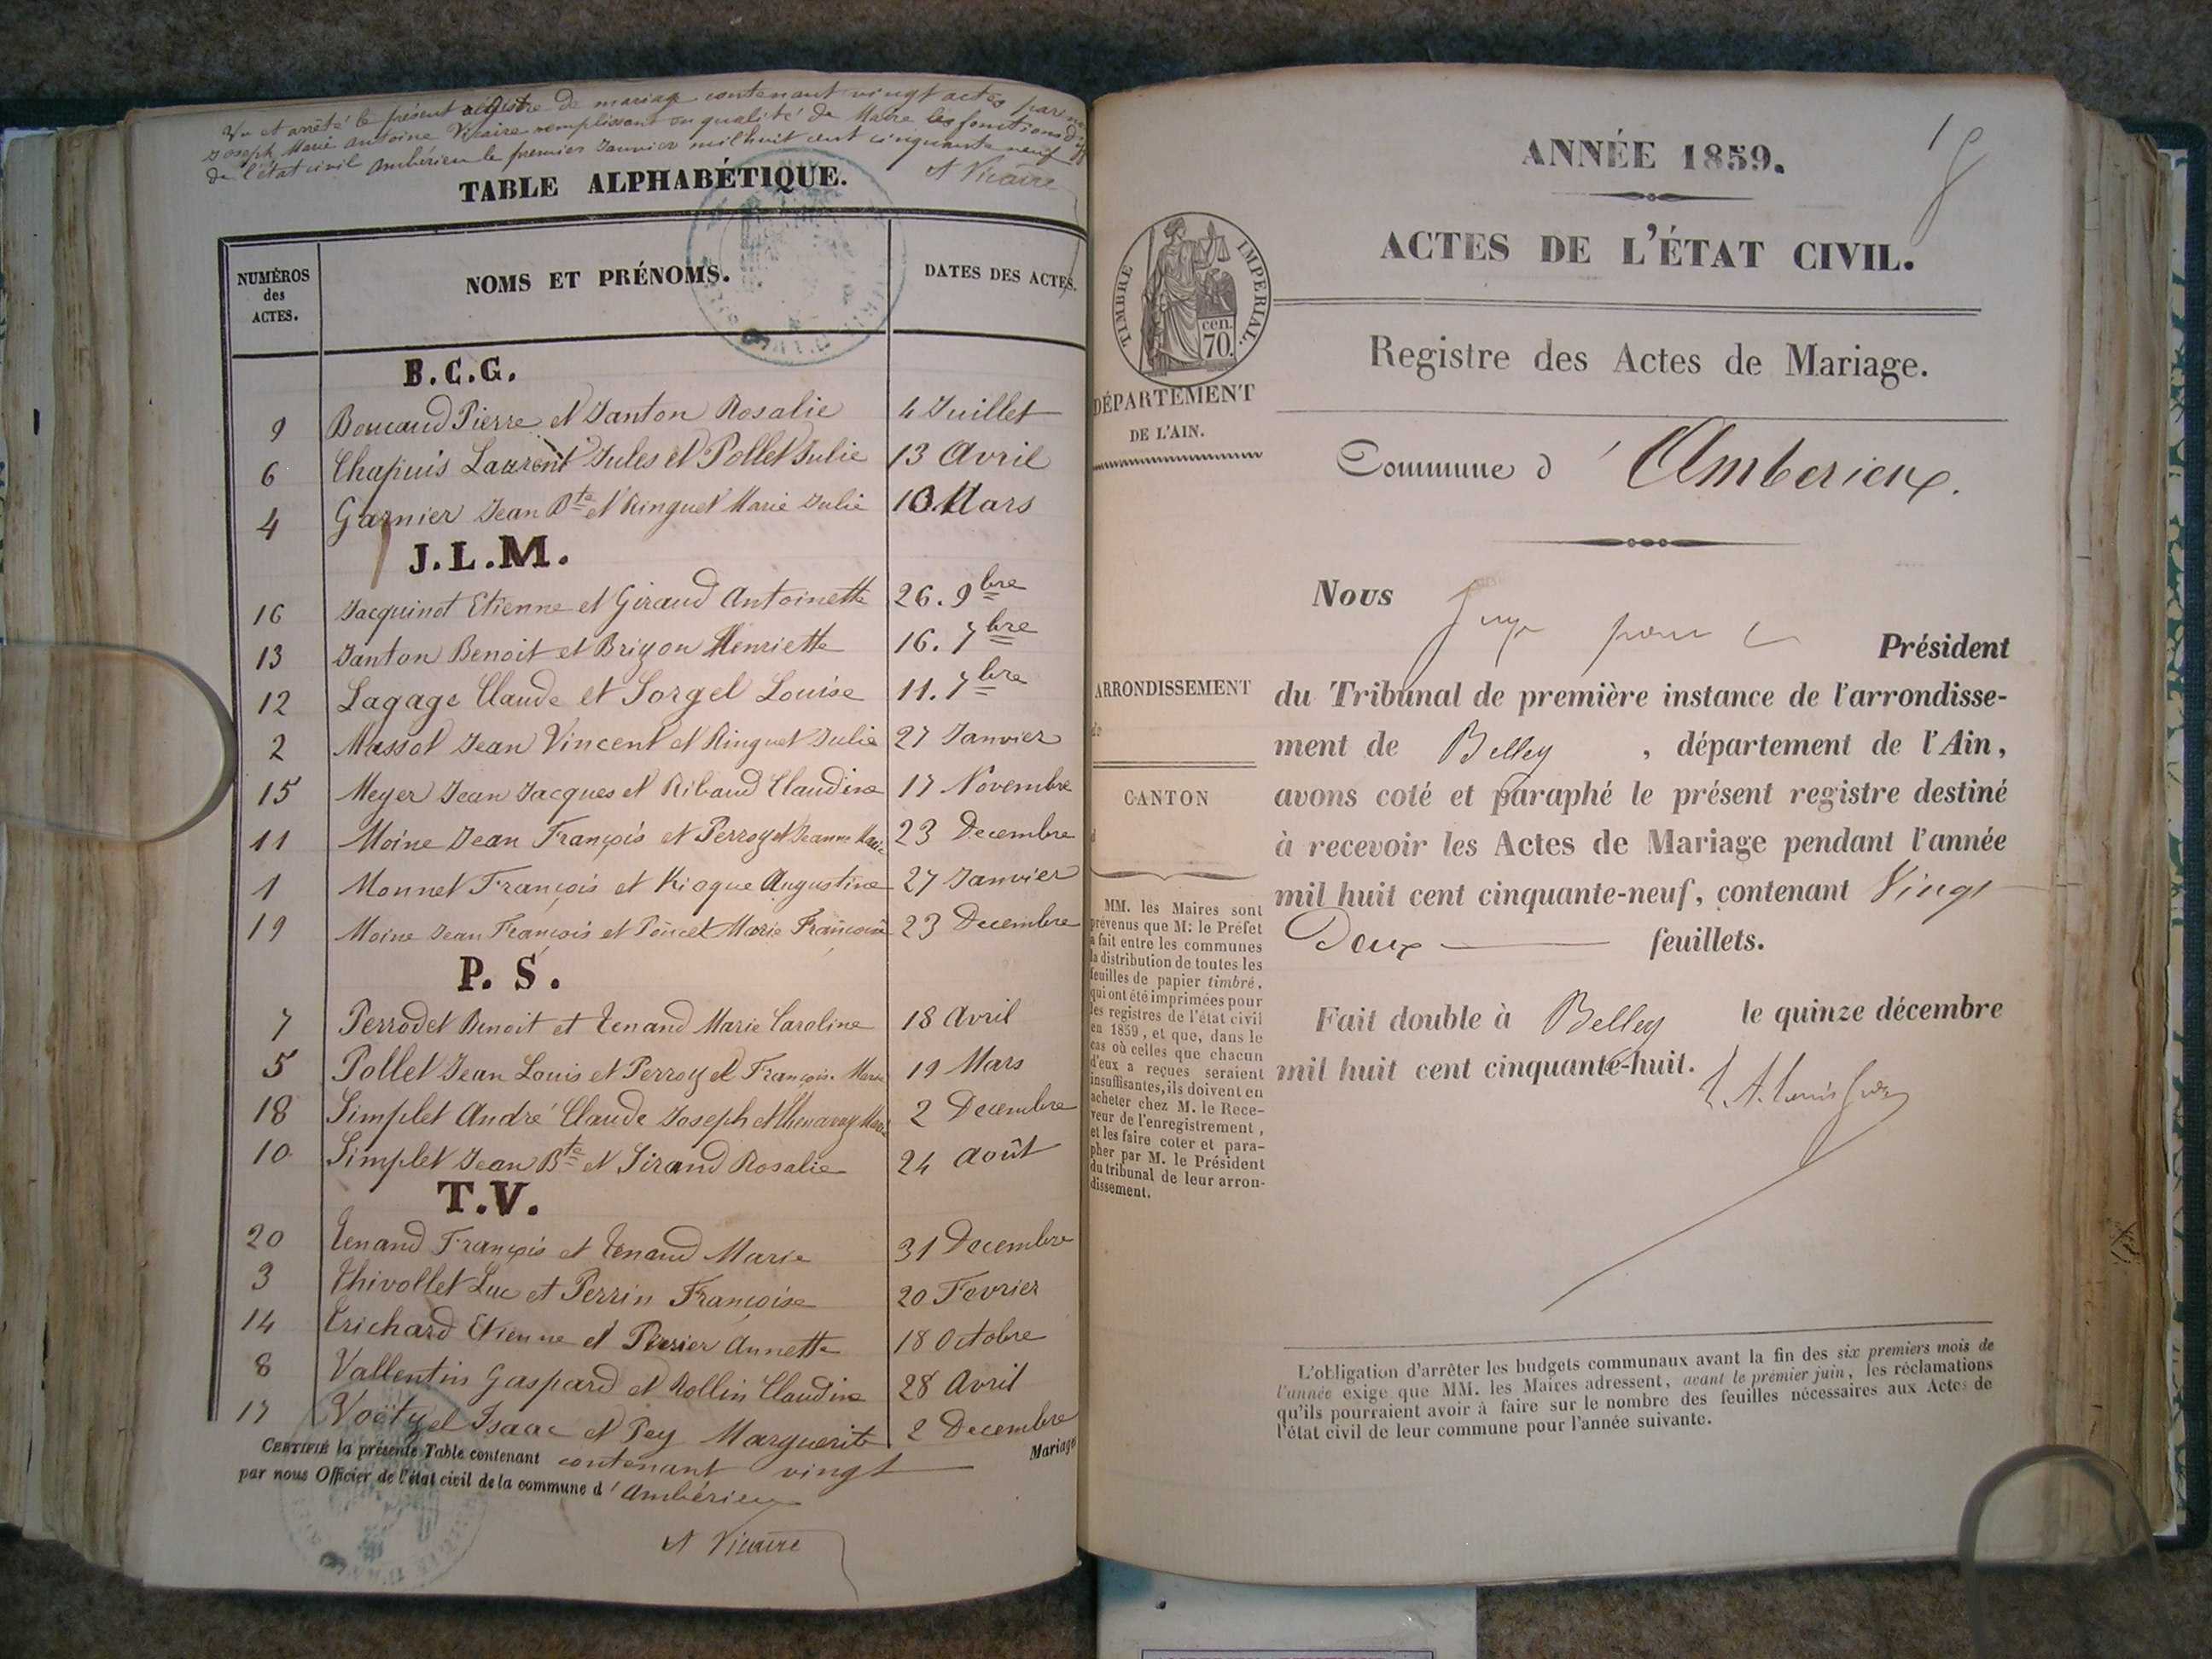 Vu et arrêté le présent registre de mariage contenant vingt actes par nous
Joseph Marie Antoine Vicaire remplissant en qualité de Maire les fonctions d'off
de l'état civil Ambérieu le premier Janvier mil huit cent cinquante neuf
A Vicaire
TABLE ALPHABÉTIQUE.
NUMÉROS des ACTES.
NOMS ET PRÉNOMS.
DATES DES ACTES.
B.C.G.
9 Boucaud Pierre et Janton Rosalie 4 Juillet
6 Chapuis Laurent Jules et Pollet Julie 13 Avril
4 Garnier Jean Bte et Ringuet Marie Julie 10 Mars
J.L.M.
16 Jacquinot Etienne et Giraud Antoinette 26. 9bre
13 Janton Benoit et Brigon Henriette 16. 7bre
12 Lagage Claude et Sorgel Louise 11. 7bre
2 Massot Jean Vincent et Ringuet Julie 27 Janvier
15 Meyer Jean Jacques et Ribaud Claudine 17 Novembre
11 Moine Jean François et Perroyet Jeanne Marie 23 Decembre
1 Monnet François et Kioque Augustine 27 Janvier
19 Moine Jean François et Poncet Marie Françoise 23 Decembre
P. S.
7 Perrodet Benoit et Tenand Marie Caroline 18 Avril
5 Pollet Jean Louis et Perroyet François. Marie 19 Mars
18 Simplet André Claude Joseph et Thenavay Marie 2 Decembre
10 Simplet Jean Bte et Sirand Rosalie 24 Août
T.V.
20 Tenand François et Tenand Marie 31 Decembre
3 Thivollet Luc et Perrin Françoise 20 Fevrier
14 Trichard Etienne et Perrier Annette 18 Octobre
8 Vallentin Gaspard et Rollin Claudine 28 Avril
17 Voëtzel Isaac et Pey Marguerite 2 Decembre
CERTIFIÉ la présente Table contenant contenant vingt Mariages
par nous Officier de l'état civil de la commune d'Ambérieu
A Vicaire
ANNÉE 1859.
ACTES DE L'ÉTAT CIVIL.
TIMBRE IMPERIAL.
cen.
70.
DÉPARTEMENT
DE L'AIN.
Registre des Actes de Mariage.
Commune d'Amberieux.
Nous Juge pour le Président
du Tribunal de première instance de l'arrondisse-
ment de Belley, département de l'Ain,
avons coté et paraphé le présent registre destiné
à recevoir les Actes de Mariage pendant l'année
mil huit cent cinquante-neuf, contenant Vingt
Deux feuillets.
Fait double à Belley le quinze décembre
mil huit cent cinquante-huit.
ARRONDISSEMENT
de
CANTON
d
MM. les Maires sont
prévenus que M: le Préfet
a fait entre les communes
la distribution de toutes les
feuilles de papier timbré,
qui ont été imprimées pour
les registres de l'état civil
en 1859, et que, dans le
cas où celles que chacun
d'eux a reçues seraient
insuffisantes, ils doivent en
acheter chez M. le Rece-
veur de l'enregistrement,
et les faire coter et para-
pher par M. le Président
du tribunal de leur arron-
dissement.
L'obligation d'arrêter les budgets communaux avant la fin des six premiers mois de
l'année exige que MM. les Maires adressent, avant le premier juin, les réclamations
qu'ils pourraient avoir à faire sur le nombre des feuilles nécessaires aux Actes de
l'état civil de leur commune pour l'année suivante.